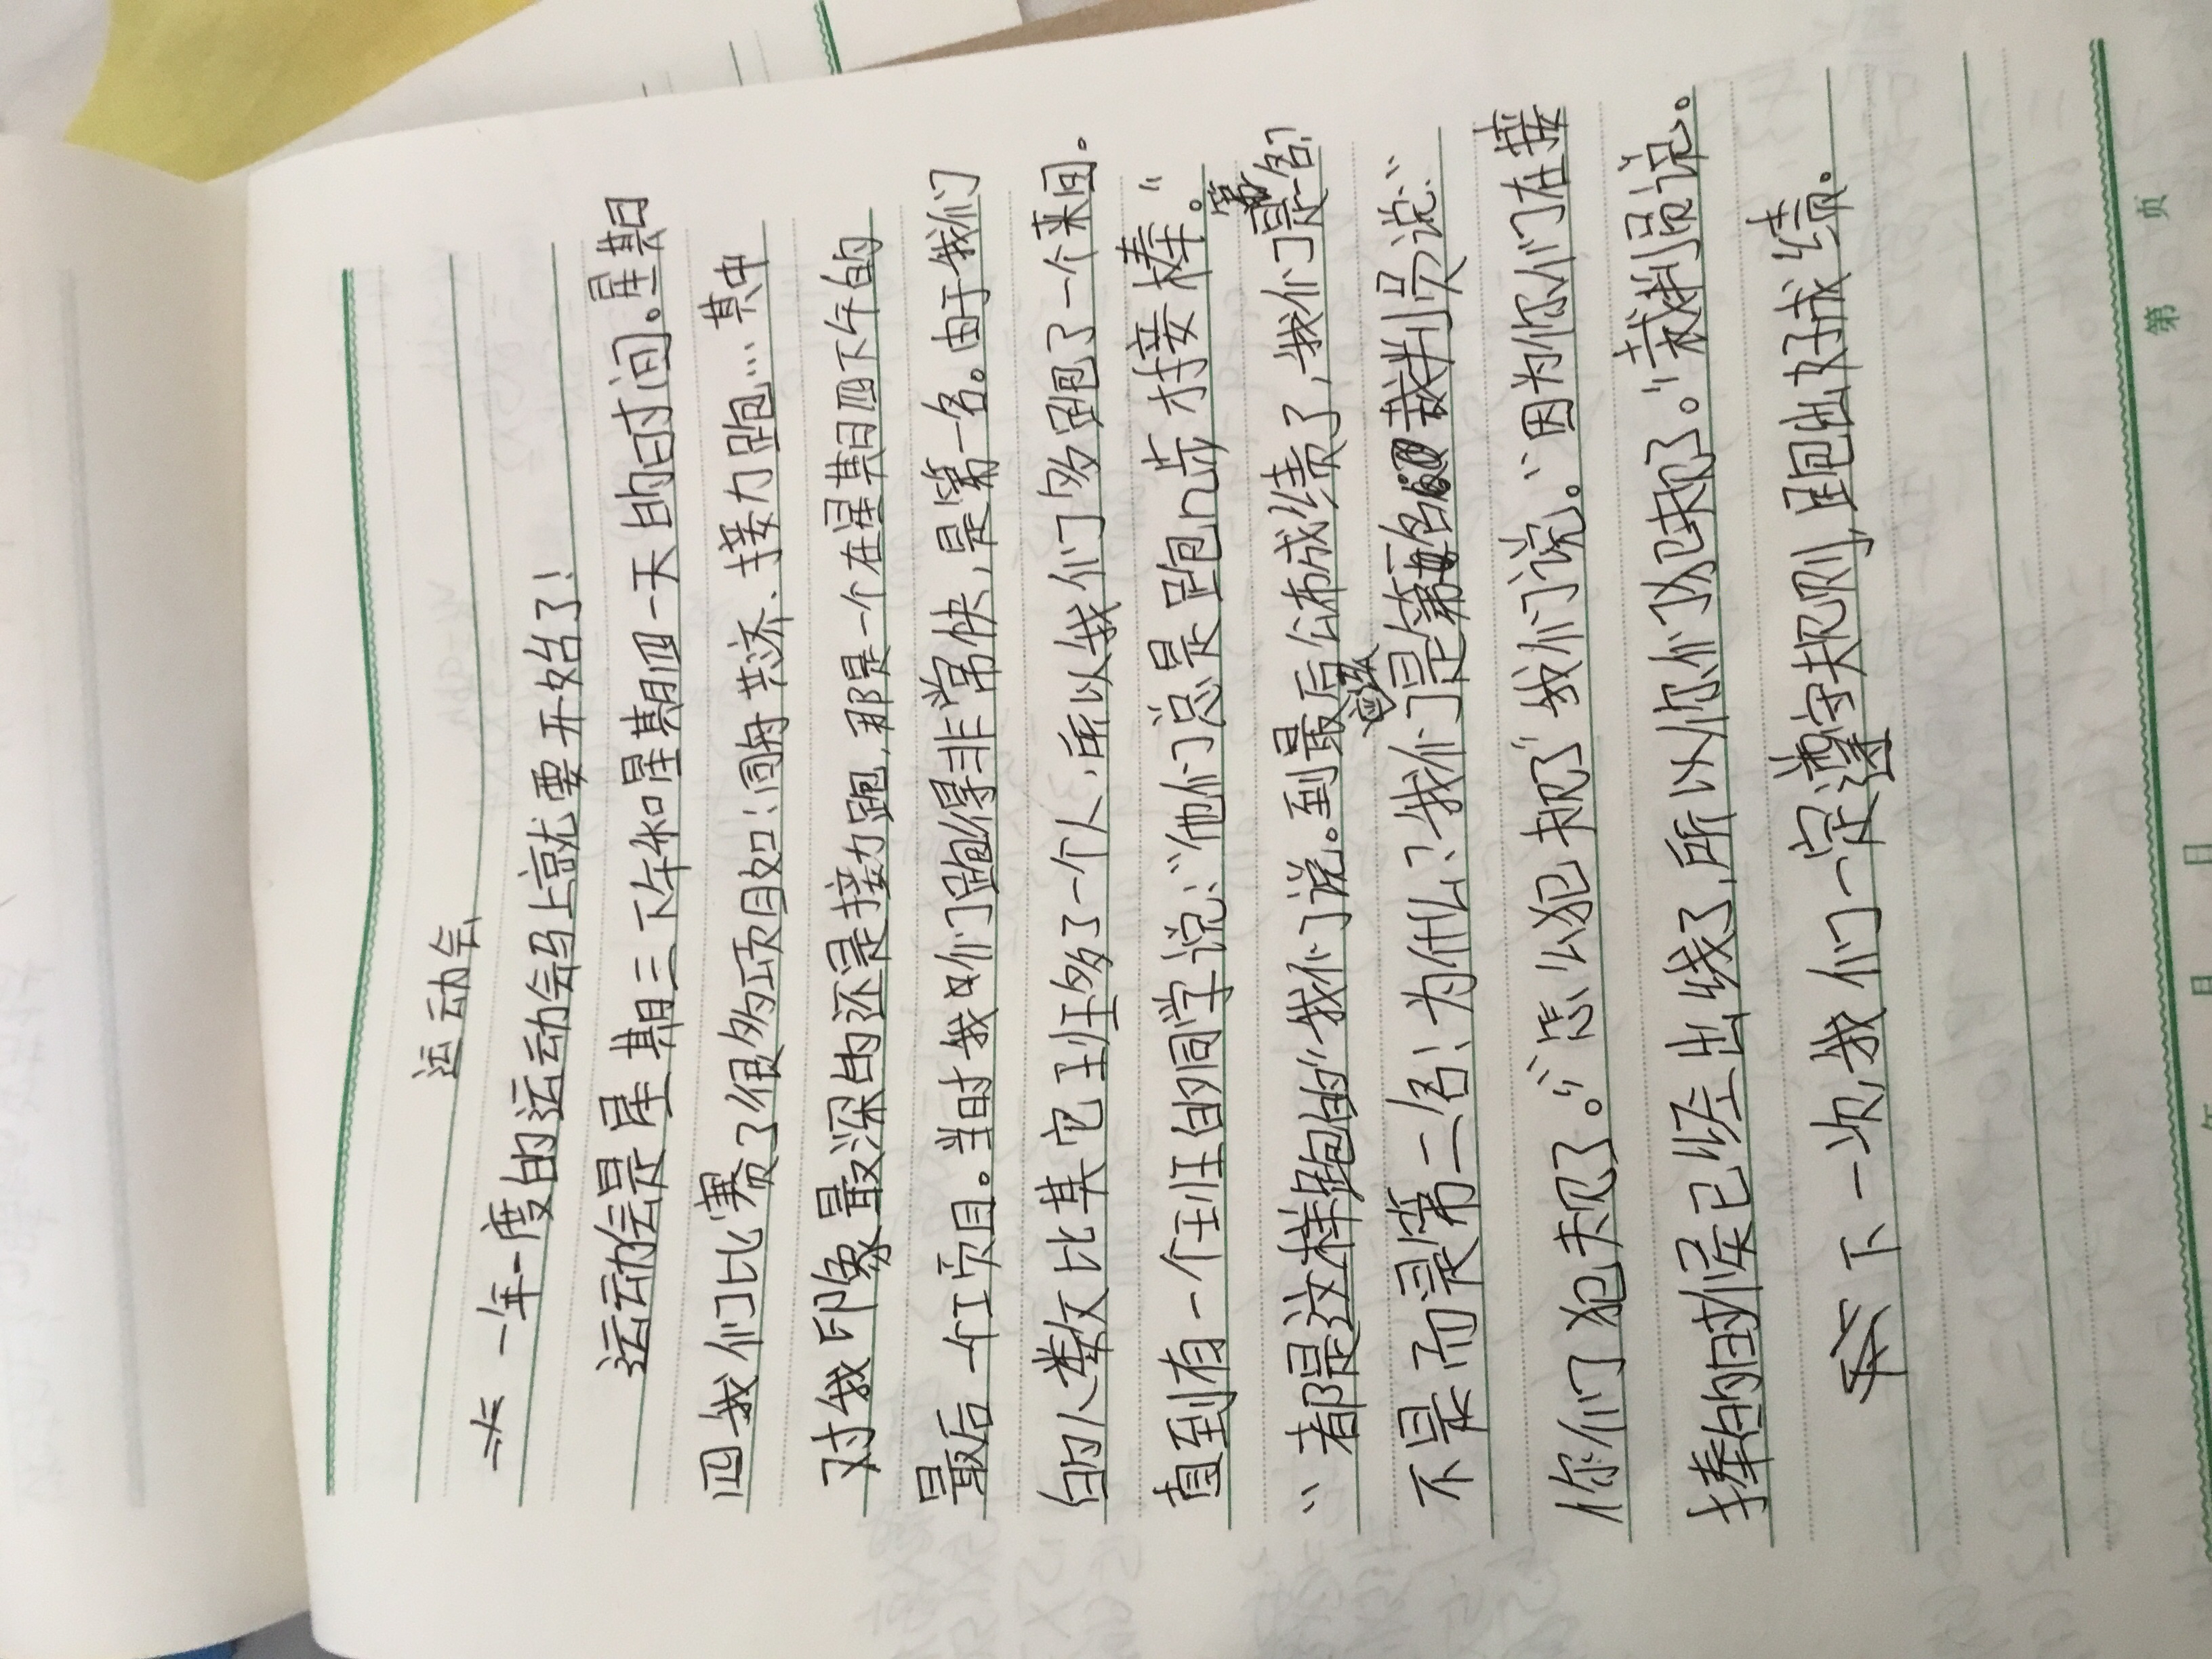 运动会
一年一度的运动会马上就要开始了！
运动会是星期三下午和星期四一天的时间。星期
四我们比赛了很多项目如：同舟共济、接力跑…其中
对我印象最深的还是接力跑，那是一个在星期四下午的
最后一个项目。当时我们跑得非常快，是第一名。由于我们
的人数比其它班多了一个人，所以我们多跑了一个来回。
直到有一个班的同学说：“他们总是跑n步才接棒。”
“都是这样跑的”我们说。到最后公布成绩了，我们是第一名？
不是而是第二名！为什么？我们是第一名 裁判员说：“
你们犯规了。”“怎么犯规了”我们说。“因为你们在接
棒的时候已经出线了，所以你们犯规了。”裁判员说。
下一次，我们一定遵守规则，跑出好成绩。
第 页
年 月 日